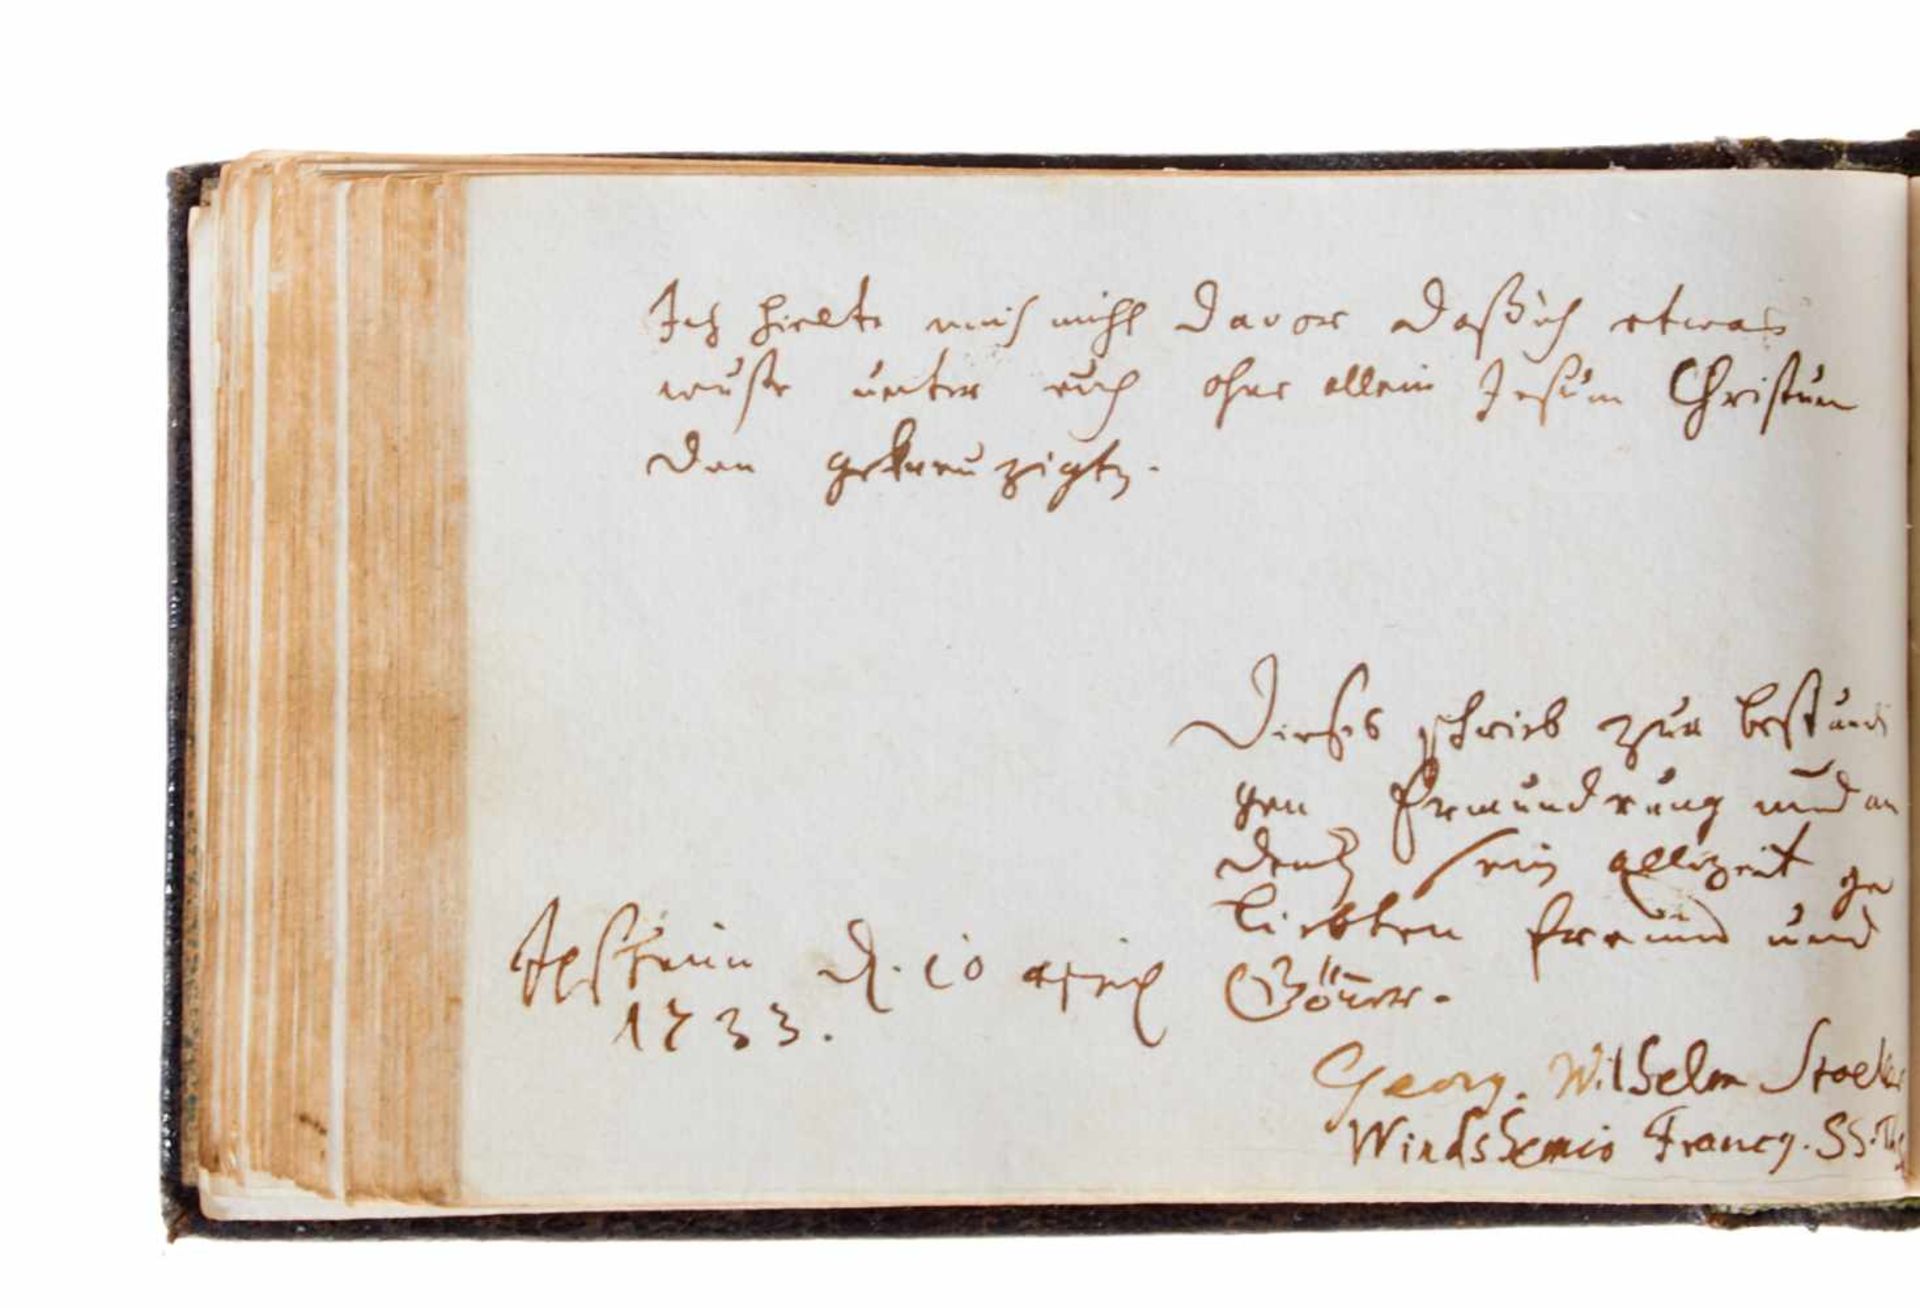 Ich hielte mich nicht davor daß ich etwas
wuste unter euch ohne allein Jesum Christum
den gekreuzigtn.
Dieses schrieb zur bestandi
gen Ermunderung und an
denck sein allezeit ge
liebten freund und
Gönner.
d. 10 april
1733.
Georg. Wilhelm
Windshemio Franc9. SS.